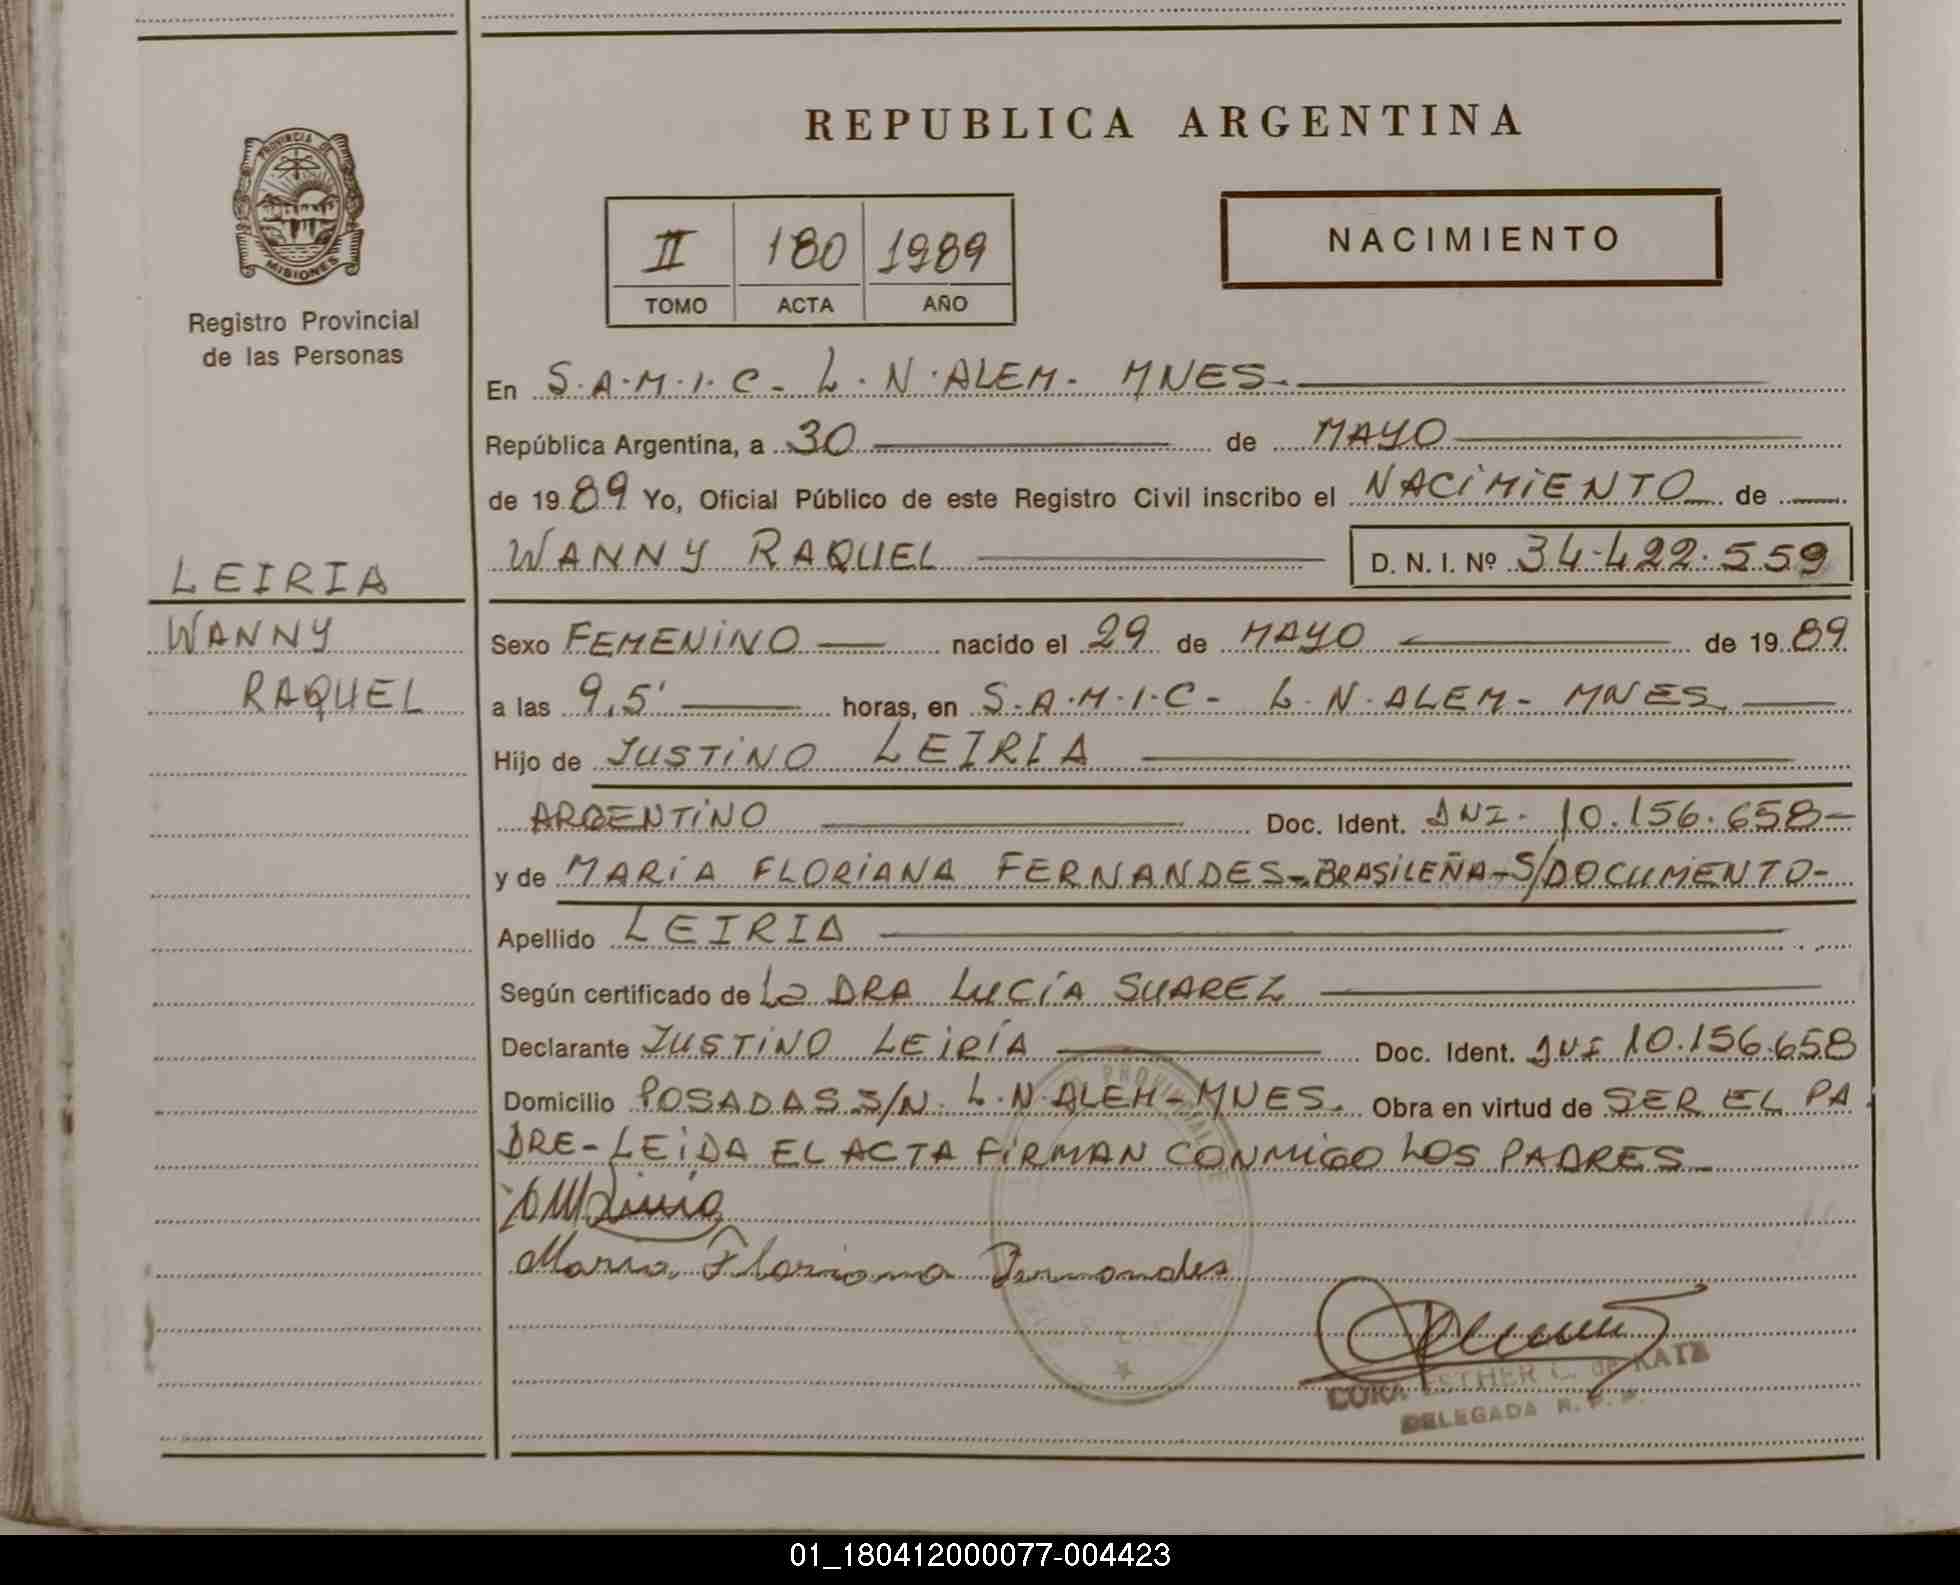 REPUBLICA ARGENTINA
PROVINCIA DE
MISIONES
Registro Provincial
de las Personas
II 180 1989
TOMO ACTA AÑO
NACIMIENTO
En S.A.M.I.C- L.N.ALEM- MNES-
República Argentina, a 30 de MAYO
de 1989 Yo, Oficial Público de este Registro Civil inscribo el NACIMIENTO de
WANNY RAQUEL D. N. I. Nº 34.422.559
LEIRIA
WANNY
RAQUEL
Sexo FEMENINO nacido el 29 de MAYO de 1989
a las 9,5' horas, en S.A.M.I.C- L.N.ALEM- MNES
Hijo de JUSTINO LEIRIA
ARGENTINO Doc. Ident. DNI. 10.156.658-
y de MARIA FLORIANA FERNANDES-BRASILEÑA-S/DOCUMENTO-
Apellido LEIRIA
Según certificado de La DRA LUCÍA SUAREZ
Declarante JUSTINO LEIRÍA Doc. Ident. DNI 10.156.658
Domicilio POSADAS S/N. L.N.ALEM-MNES. Obra en virtud de SER EL PA
DRE-LEIDA EL ACTA FIRMAN CONMIGO LOS PADRES-
Maria Floriana Fernandes
ESTHER C. de KATZ
DELEGADA R. P. P.
01_180412000077-004423